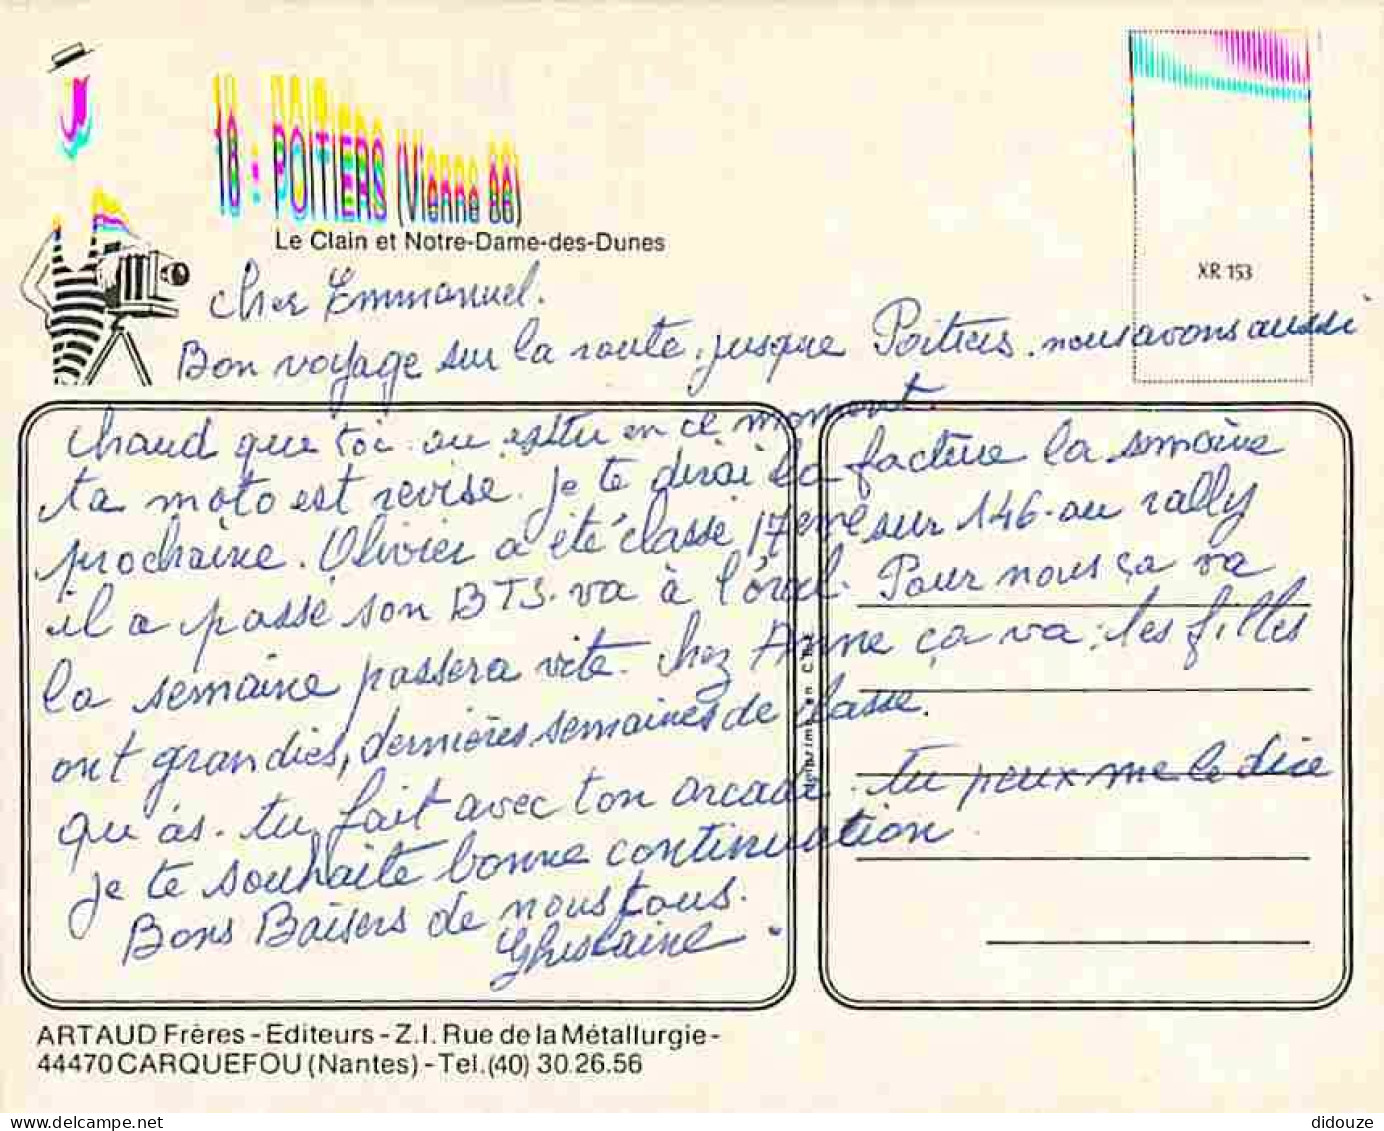 18 : POITIERS (Vienne 86)
Le Clain et Notre-Dame-des-Dunes
XR 153
cher Emmanuel.
Bon voyage sur la route, jusque Poitiers. nous avons aussi
chaud que toi. ou estu en ce moment.
ta moto est revise. je te dirai la facture la semaine
prochaine. Olivier a été classé 17eme sur 146. au rally
il a passé son BTS. va à l'oral. Pour nous ça va
la semaine passera vite. chez Anne ça va : les filles
ont grandies, dernières semaines de classe.
qu'as. tu fait avec ton arcade. tu peux me le dire
je te souhaite bonne continuation.
Bons Baisers de nous tous.
Ghislaine.
ARTAUD Frères - Editeurs - Z.I. Rue de la Métallurgie -
44470 CARQUEFOU (Nantes) - Tel. (40) 30.26.56
didouze